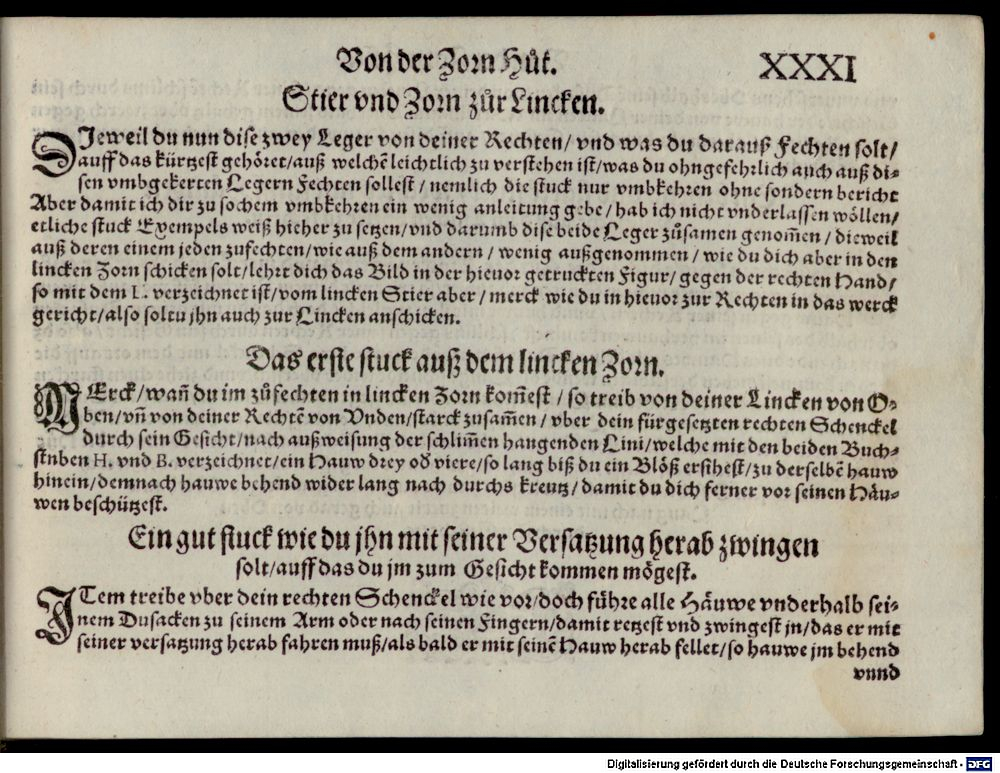 Von der Zorn Hůt.
XXXI
Stier vnd Zorn zůr Lincken.
DJeweil du nun dise zwey Leger von deiner Rechten/ vnd was du darauß Fechten solt/
auff das kürtzest gehöret/auß welchẽ leichtlich zu verstehen ist/was du ohngefehrlich auch auß di-
sen vmbgekerten Legern Fechten sollest/ nemlich die stuck nur vmbkehren ohne sondern bericht
Aber damit ich dir zu sochem vmbkehren ein wenig anleitung gebe/ hab ich nicht vnderlassen wöllen/
etliche stuck Exempels weiß hieher zu setzen/vnd darumb dise beide Leger zůsamen genom̃en/ dieweil
auß deren einem jeden zufechten/wie auß dem andern/ wenig außgenommen/ wie du dich aber in den
lincken Zorn schicken solt/lehrt dich das Bild in der hieuor getruckten Figur/ gegen der rechten Hand/
so mit dem L. verzeichnet ist/vom lincken Stier aber/ merck wie du in hieuor zur Rechten in das werck
gericht/also soltu jhn auch zur Lincken anschicken.
Das erste stuck auß dem lincken Zorn.
MErck/wañ du im zůfechten in lincken Zorn kom̃est/ so treib von deiner Lincken von O-
ben/vñ von deiner Rechtẽ von Vnden/starck zusam̃en/ vber dein fürgesetzten rechten Schenckel
durch sein Gesicht/nach außweisung der schlim̃en hangenden Lini/welche mit den beiden Buch-
stnben H. vnd B. verzeichnet/ein Hauw drey od̃ viere/so lang biß du ein Blöß ersihest/zu derselbẽ hauw
hinein/demnach hauwe behend wider lang nach durchs kreutz/damit du dich ferner vor seinen Häu-
wen beschützest.
Ein gut stuck wie du jhn mit seiner Versatzung herab zwingen
solt/auff das du jm zum Gesicht kommen mögest.
JTem treibe vber dein rechten Schenckel wie vor/doch führe alle Häuwe vnderhalb sei-
nem Dusacken zu seinem Arm oder nach seinen Fingern/damit retzest vnd zwingest jn/das er mit
seiner versatzung herab fahren muß/als bald er mit seinẽ Hauw herab fellet/so hauwe jm behend
vnnd
Digitalisierung gefördert durch die Deutsche Forschungsgemeinschaft - DFG